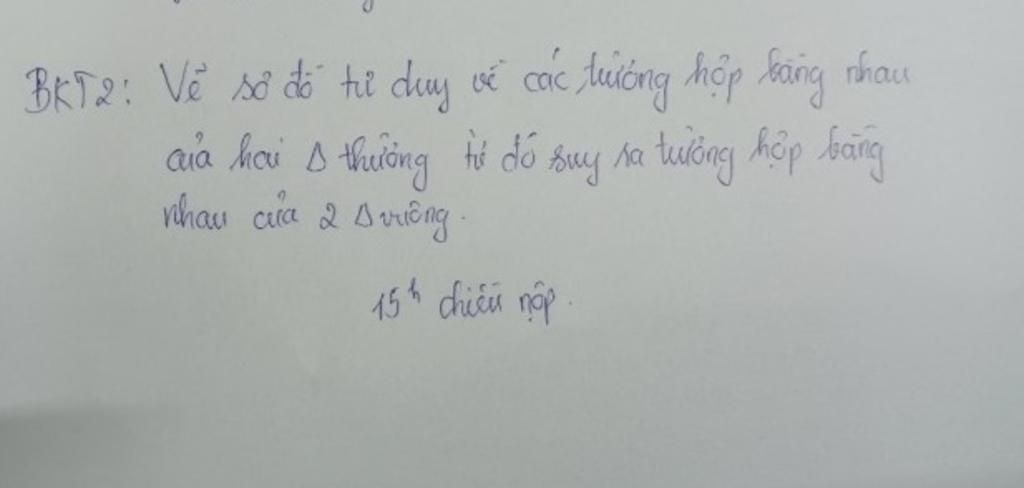 BKT2: Vẽ sơ đồ tư duy về các trường hợp bằng nhau
của hai Δ thường từ đó suy ra trường hợp bằng
nhau của 2 Δ vuông.
15h chiều nộp.